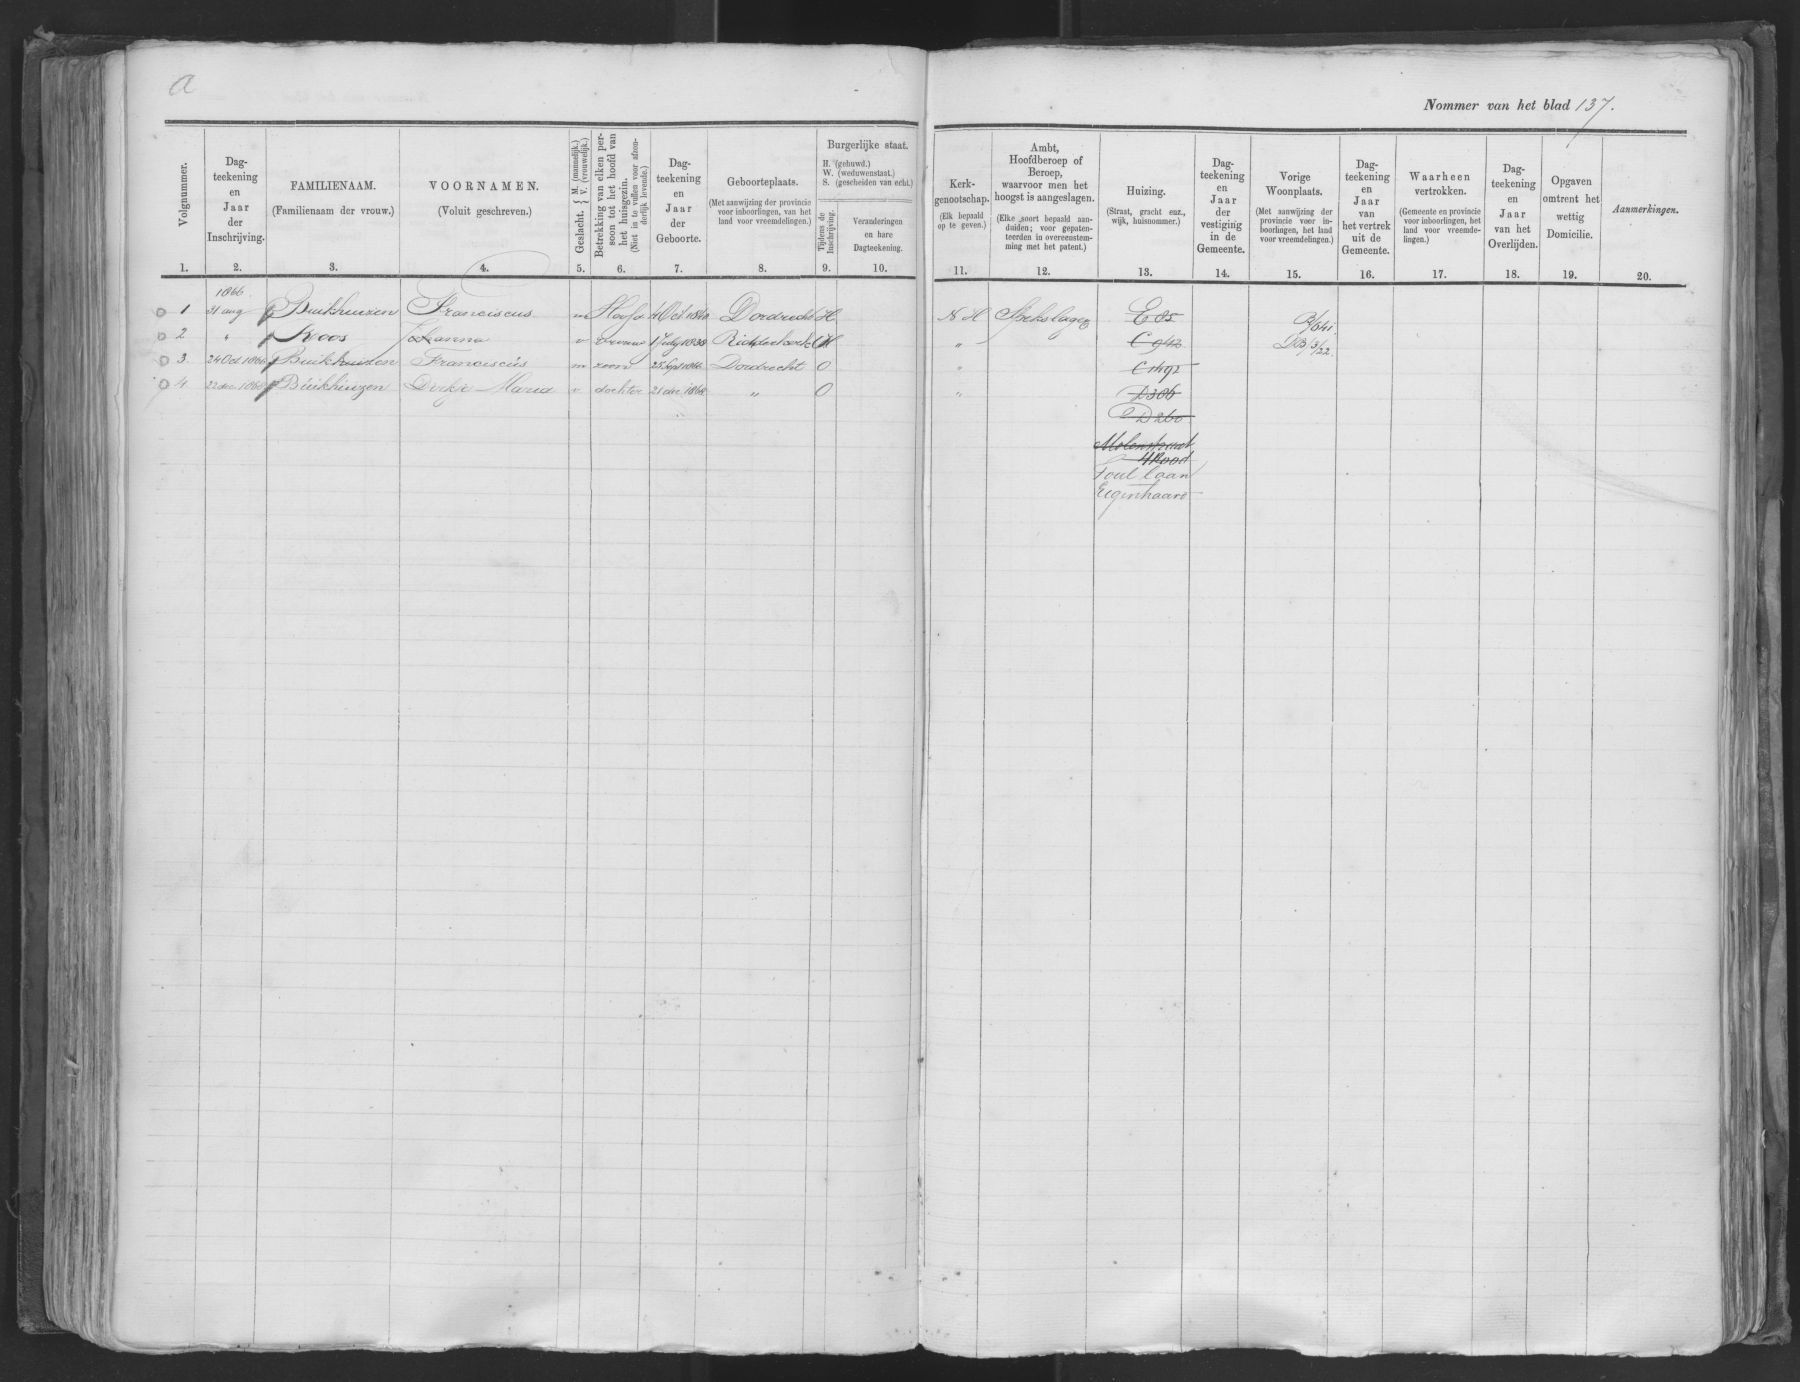 a
Nommer van het blad 137.
Volgnummer.
Dag-
teekening
en
Jaar
der
Inschrijving.
FAMILIENAAM.
(Familienaam der vrouw.)
VOORNAMEN.
(Voluit geschreven.)
Geslacht. { M. (mannelijk.) V. (vrouwelijk.)
Betrekking van elken per-
soon tot het hoofd van
het huisgezin.
(Niet in te vullen voor afzon-
derlijk levende.)
Dag-
teekening
en
Jaar
der
Geboorte.
Geboorteplaats.
(Met aanwijzing der provincie
voor inboorlingen, van het
land voor vreemdelingen.)
Burgerlijke staat.
H. (gehuwd.)
W. (weduwenstaat.)
S. (gescheiden van echt.)
Tijdens de
Inschrijving.
Veranderingen
en hare
Dagteekening.
Kerk-
genootschap.
(Elk bepaald
op te geven.)
Ambt,
Hoofdberoep of
Beroep,
waarvoor men het
hoogst is aangeslagen.
(Elke soort bepaald aan-
duiden; voor gepaten-
teerden in overeenstem-
ming met het patent.)
Huizing.
(Straat, gracht enz.,
wijk, huisnommer.)
Dag-
teekening
en
Jaar
der
vestiging
in de
Gemeente.
Vorige
Woonplaats.
(Met aanwijzing der
provincie voor in-
boorlingen, het land
voor vreemdelingen.)
Dag-
teekening
en
Jaar
van
het vertrek
uit de
Gemeente.
Waarheen
vertrokken.
(Gemeente en provincie
voor inboorlingen, het
land voor vreemde-
lingen.)
Dag-
teekening
en
Jaar
van het
Overlijden.
Opgaven
omtrent het
wettig
Domicilie.
Aanmerkingen.
1. 2. 3. 4. 5. 6. 7. 8. 9. 10. 11. 12. 13. 14. 15. 16. 17. 18. 19. 20.
1866
1 31 aug Buikhuizen Franciscus m Hoofd 4 Oct 1840 Dordrecht H N H Spekslager E 85
2 " Koos Johanna v vrouw 1 July 1838 Ridderkerk H " C 942
3. 24 Oct. 1866 Buikhuizen Franciscus m zoon 25 Sept 1866 Dordrecht O " C 1492
4. 22 dec 1868 Buikhuizen Dirkje Maria v dochter 21 dec 1868 " O " D 386
D 260
Molenstraat
4 Rood
laan
Eigenhaard